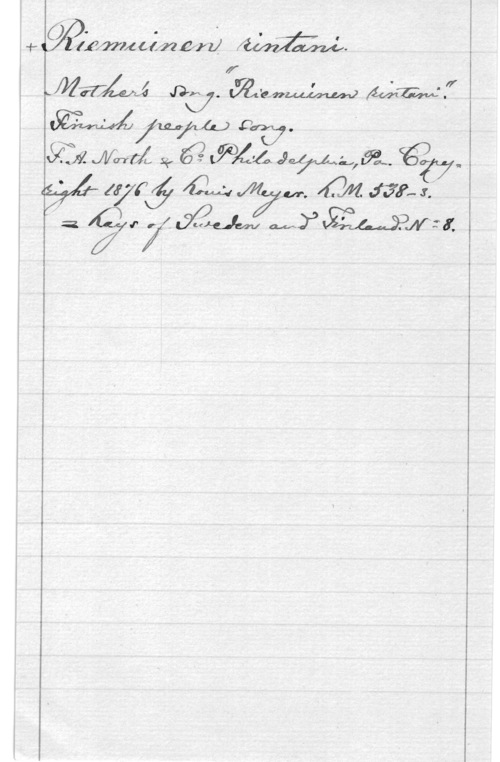 + Riemuinen rintani.
Mother's song. "Riemuinen rintani".
Finnish people song.
F. A. North & Co Philadelphia, Pa. Copy-
right 1876 by Louis Meyer. L. M. 538-3.
= Lays of Sweden and Finland. No 8.